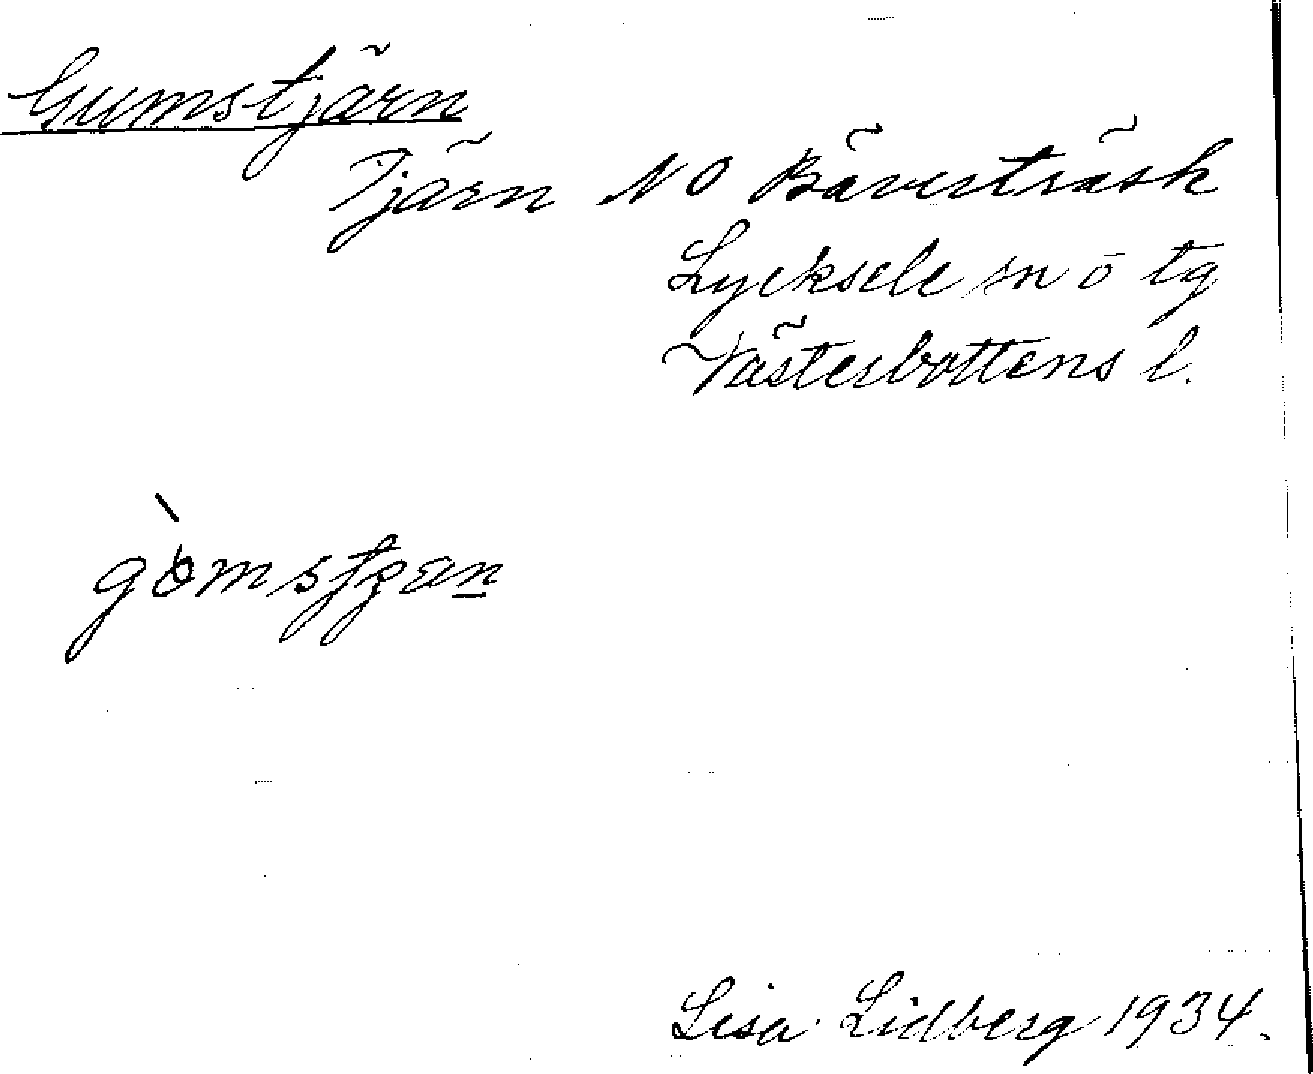 Gumstjärn
Tjärn NO Bäverträsk
Lycksele sn o tg
Västerbottens l.
Lisa Lidberg 1934.